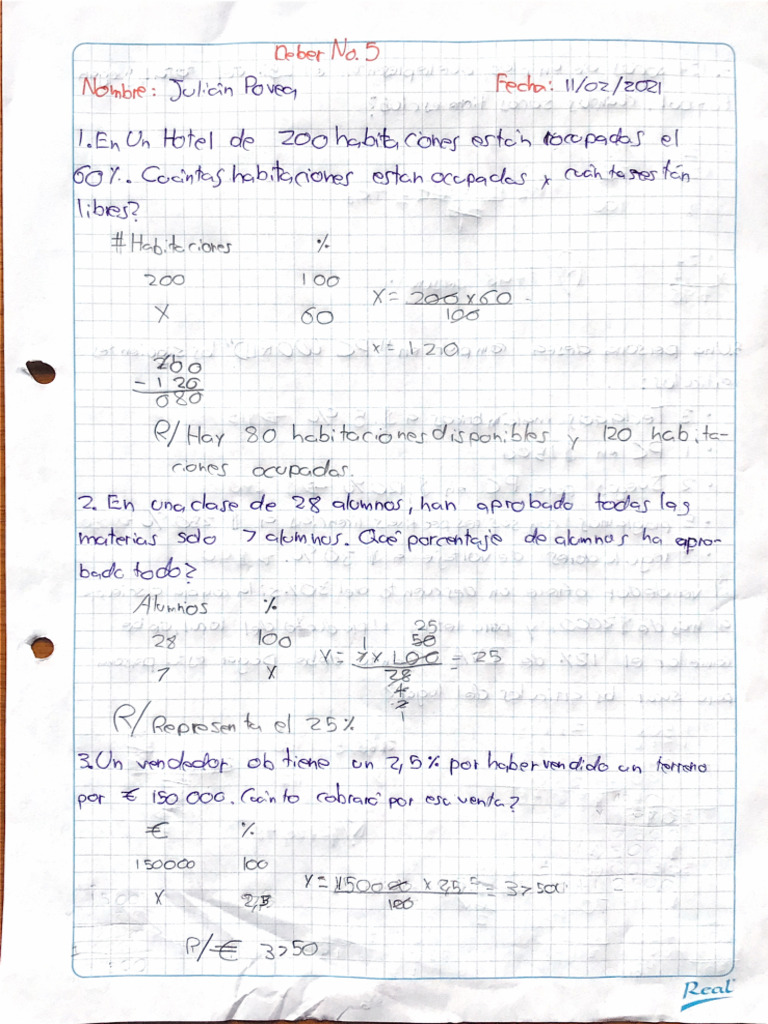 Deber No. 5
Nombre: Julián Povea Fecha: 11/02/2021
1. En Un Hotel de 200 habitaciones están ocupadas el
60%. Cuántas habitaciones estan ocupadas y cuántas están
libres?
# Habitaciones %
200 100
X 60
X = 200 x 60
100
x = 120
200
- 120
080
R/ Hay 80 habitaciones disponibles y 120 habita-
ciones ocupadas.
2. En una clase de 28 alumnos, han aprobado todas las
materias solo 7 alumnos. Qué porcentaje de alumnos ha apro-
bado todo?
Alumnos %
28 100
7 X
25
1 50
X = 7 x 100 = 25
28
4
2
1
R/ Representa el 25%
3. Un vendedor obtiene un 2,5% por haber vendido un terreno
por € 150 000. Cuánto cobrará por esa venta?
€ %
150000 100
X 2,5
X = 150000 x 2,5 = 37500
100
R/ € 3750
Real